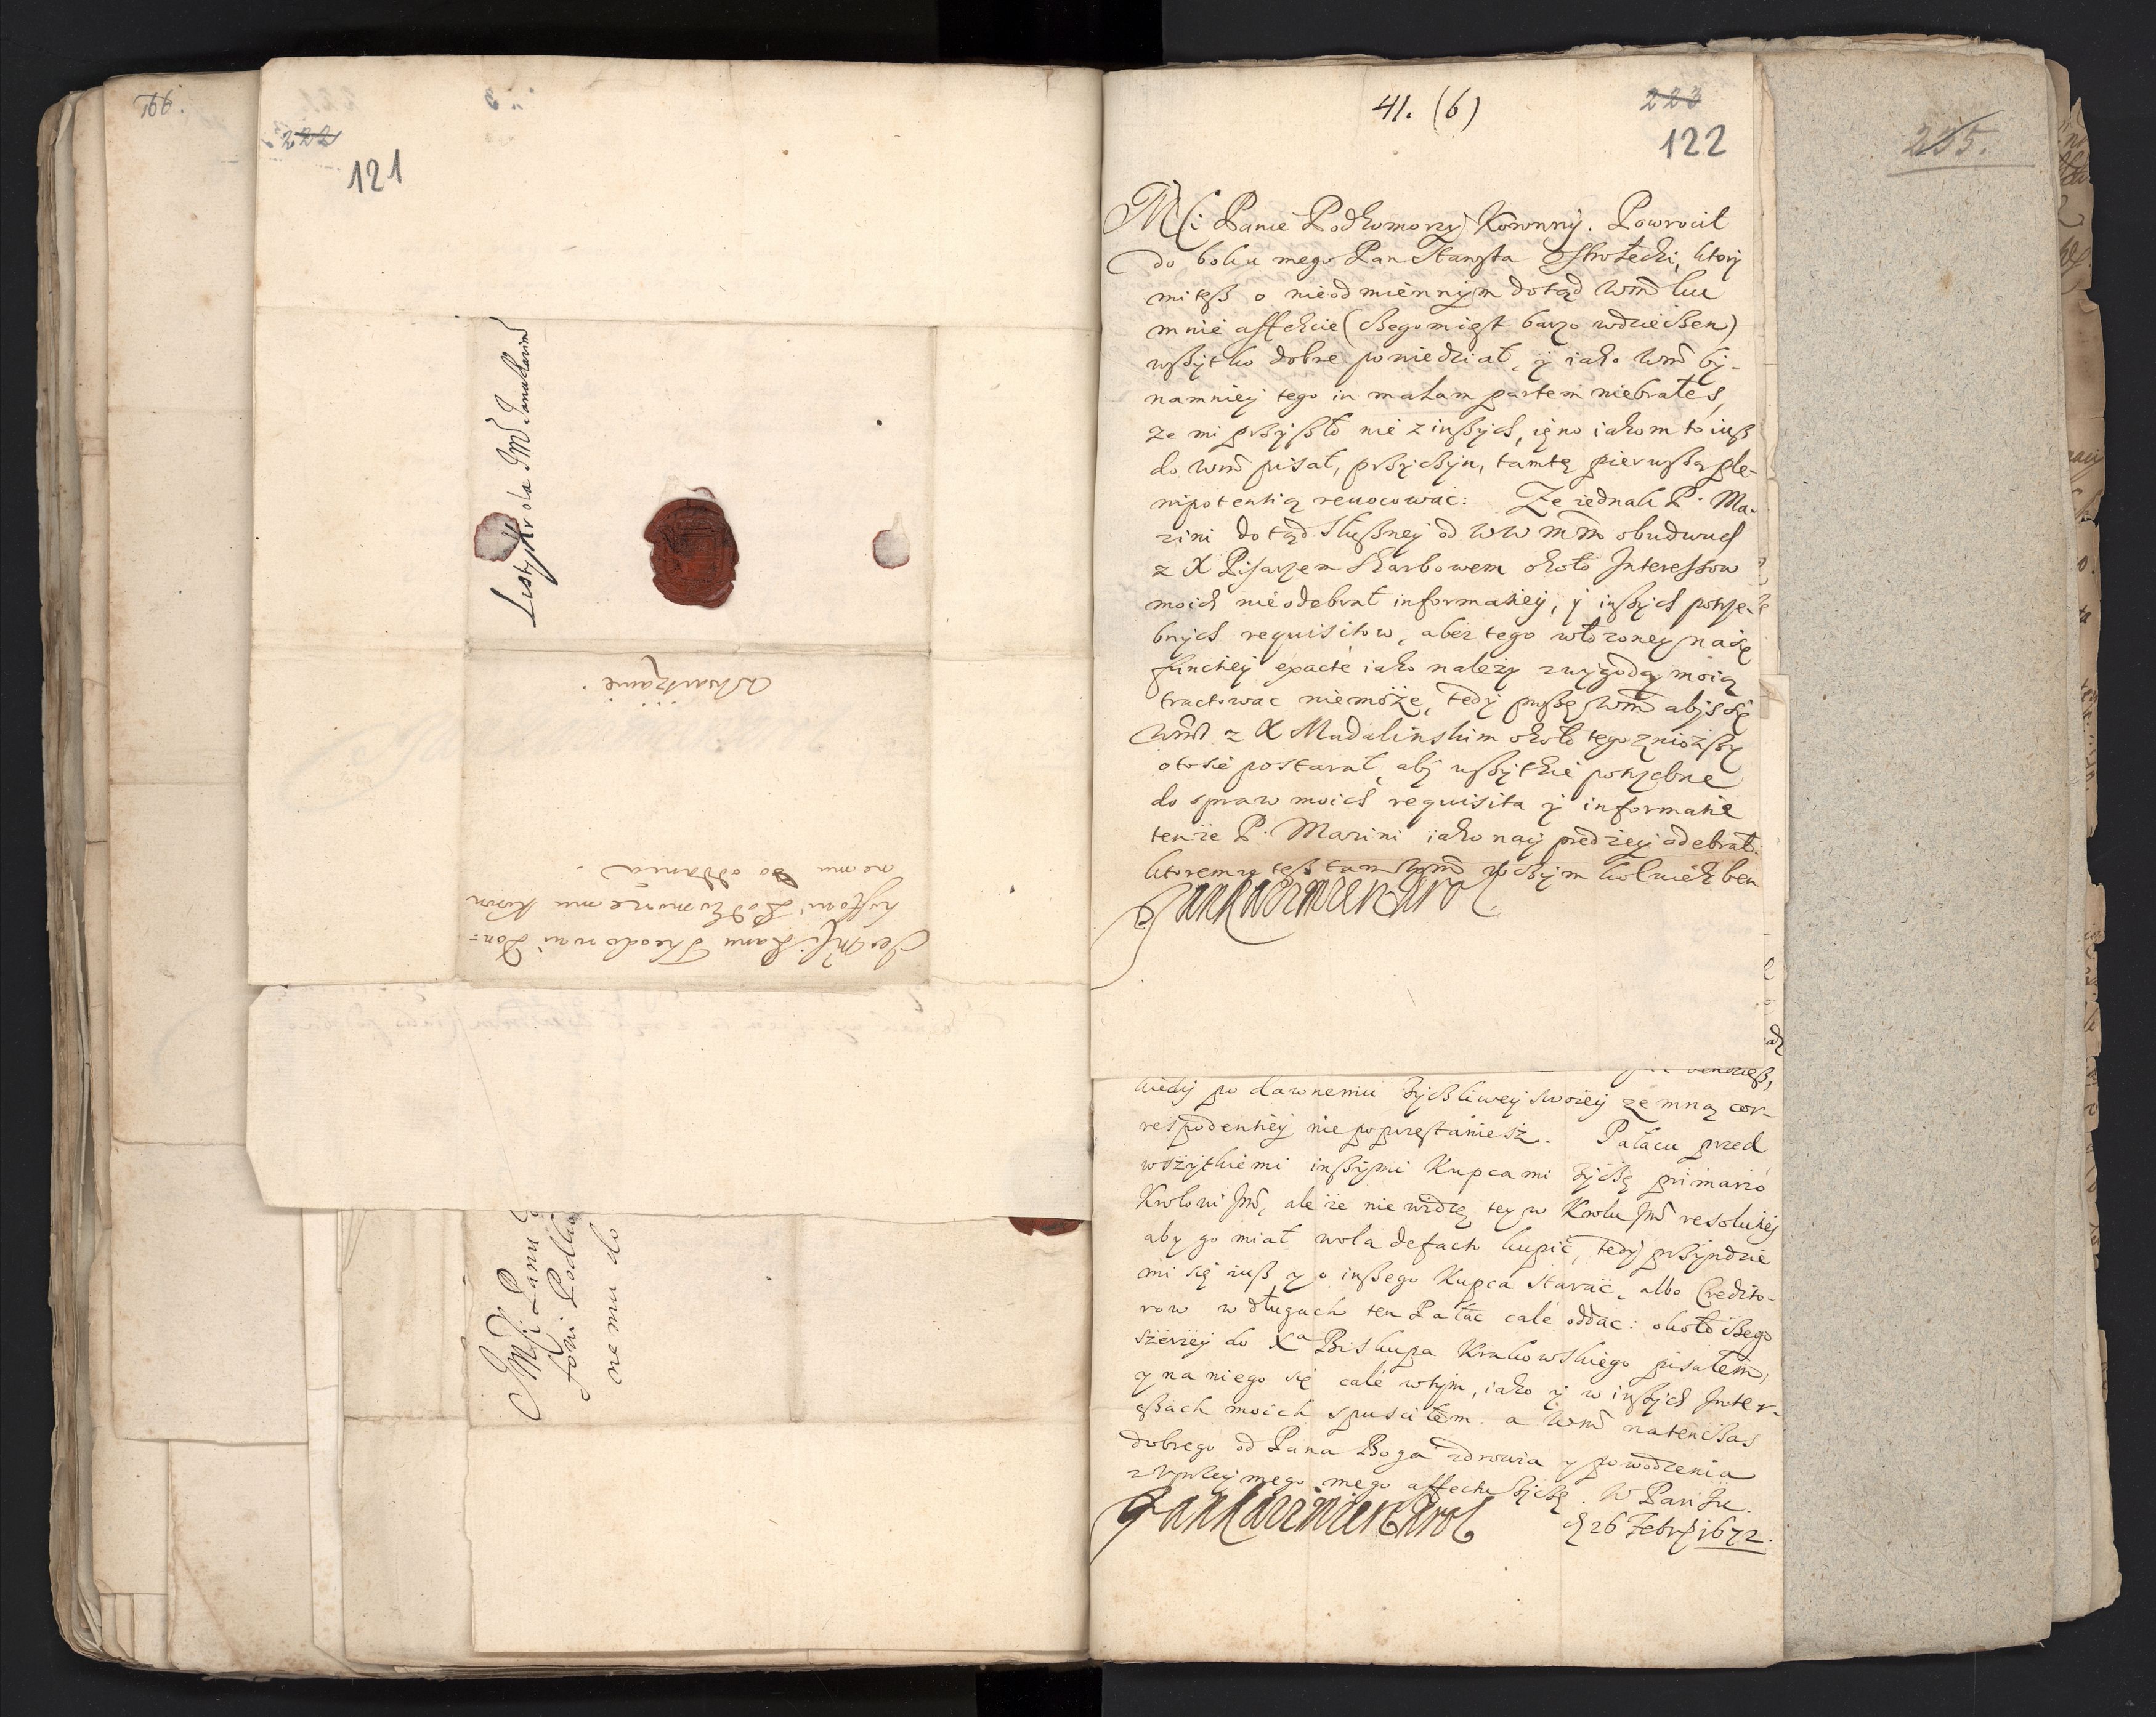 166.
222
121
Listy Krola JMĆ Jana Kazim
w Warszawie.
Je° Mći Panu Theodorowi Don=
hoffowi Podkomorzemu Koron
nemu do oddania.
JMći Panu
fowi Podko
nemu do
41. (6)
223
122
255.
Mći Panie Podkomorzy Koronny. Powrocił
do boku mego Pan Starosta Ostrołecki, ktory
mi teß o nieodmiennym dotąd Wmć ku
mnie affekcie (cßego mięst barzo wdziecßen)
wßytko dobre powiedział, y iako Wmć by-
namniey tego in malam partem niebrałeś,
ze mi przyßło nie z inßych, ieno iakom to iuß
do Wmć pisał, przycßyn, tamtą pierwßą ple-
nipotentią reuocować: Ze iednak P. Ma-
rini dotąd słußney od WWmm obudwuch
z X Pisarzem Skarbowem około Interessow
moich nieodebrał informatiey, y inßych potrze-
bnych requisitow, a bez tego włożoney na się
functiey exacte iako należy z wygodą moią
tractować niemoże, tedy pußę Wmć abyś się
Wmć z X Madalinskim około tego zniozßy
oto sie postarał, aby wßytkie potrzebne
do spraw moich requisita y informatie
tenże P. Marini iako nayprędzey odebrał.
ktoremu teß tam Wmć w cßym kolwiek ben
Jan Kazimierz Krol
bendzieß,
kiedy po dawnemu życßliwey swoiey ze mną cor-
respodentiey nie poprzestaniesz. Pałacu przed
wszytkiemi inßymi Kupcami życßę primario
Krolowi Jmć, ale że nie widzę tey w Krolu Jmć resolutiey
aby go miał wola defacto kupić, tedy przyndzie
mi się iuß y o inßego Kupca starać, albo Credito-
row w długach ten Pałac cale oddać: około cßego
szerzey do Xa Biskupa Krakowskiego pisałem,
y na niego się cale w tym, iako y w inßych Inter-
eßach moich spuscilem. a Wmć natencßas
dobrego od Pana Boga zdrowia y powodzenia
z uprzeymego mego affectu życßę. W Pariżu.
Jan Kazimierz Krol
d 26 Febry 1672.